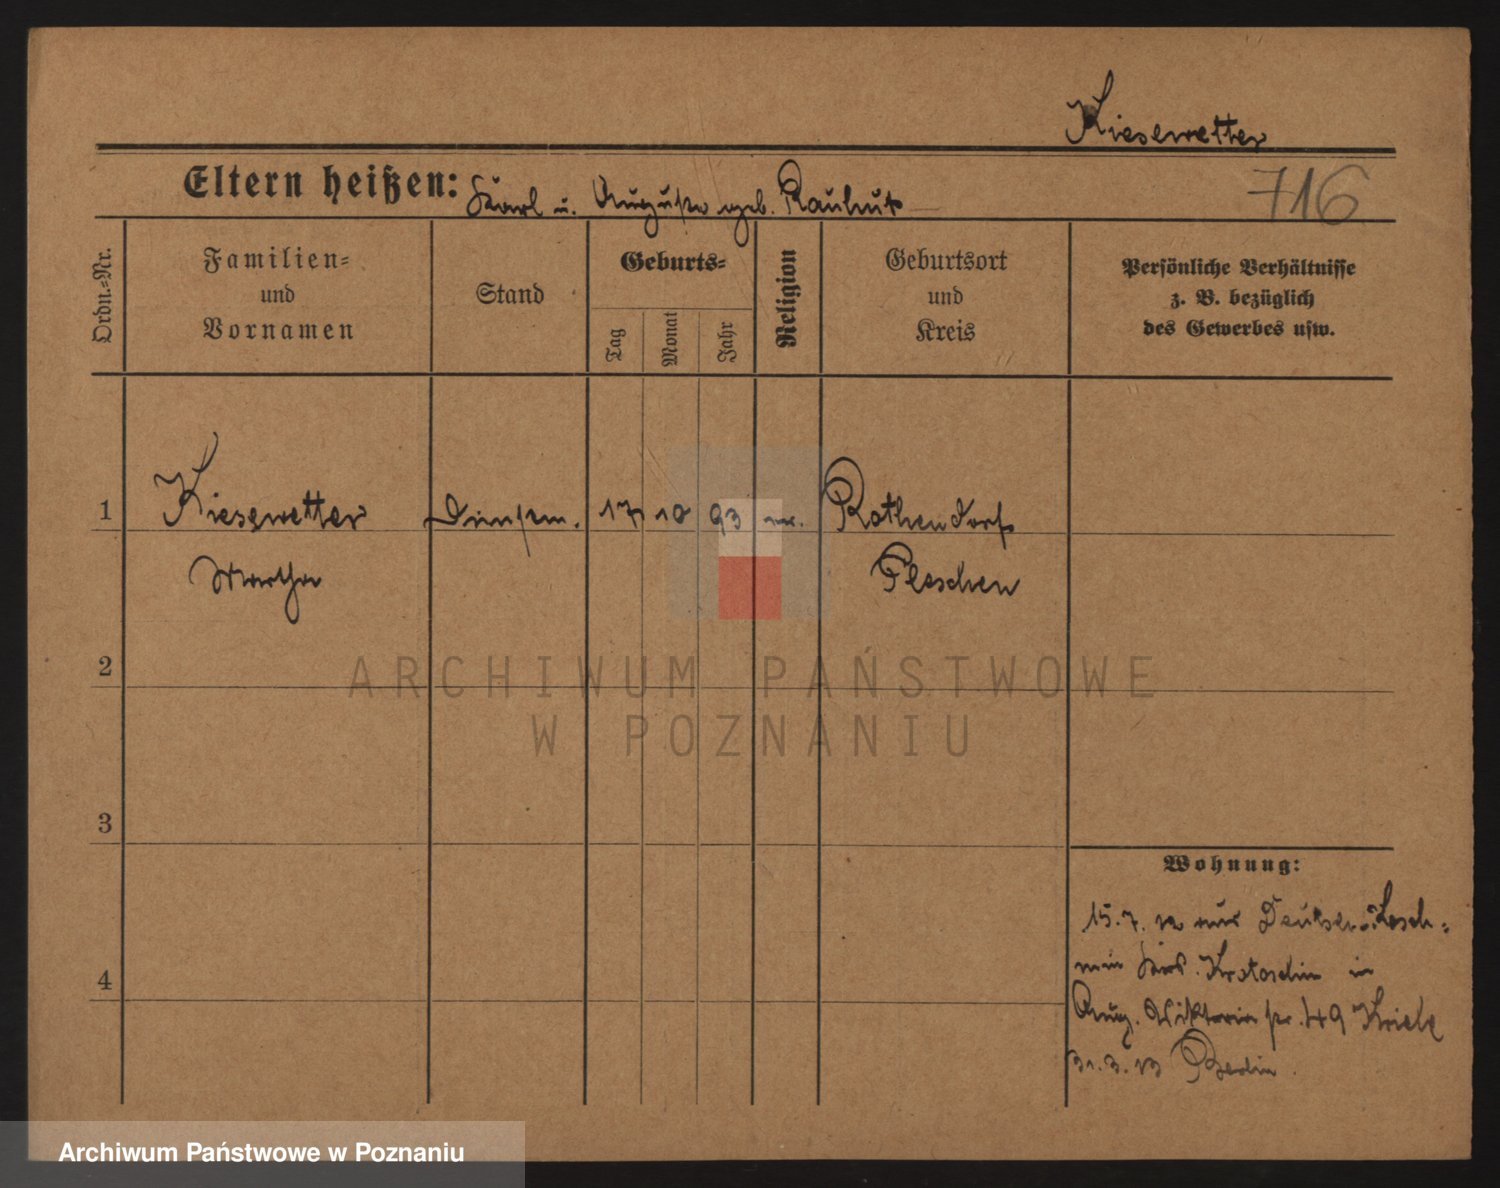 Kiesewetter
Eltern heißen: Karl u. Auguste geb. Rauhut
716
Ordn.-Nr.
Familien-
und
Vornamen
Stand
Geburts-
Tag
Monat
Jahr
Religion
Geburtsort
und
Kreis
Persönliche Verhältnisse
z. B. bezüglich
des Gewerbes usw.
1
Kiesewetter
Martha
Dienstm.
17 10 93
ev.
Rothendorf
Pleschen
2
3
4
Wohnung:
15.7.12 aus Deutsch-Kosch-
min Krs. Krotoschin in
Aug. Viktoriastr. 49
31.3.13 Berlin.
ARCHIWUM PAŃSTWOWE
W POZNANIU
Archiwum Państwowe w Poznaniu